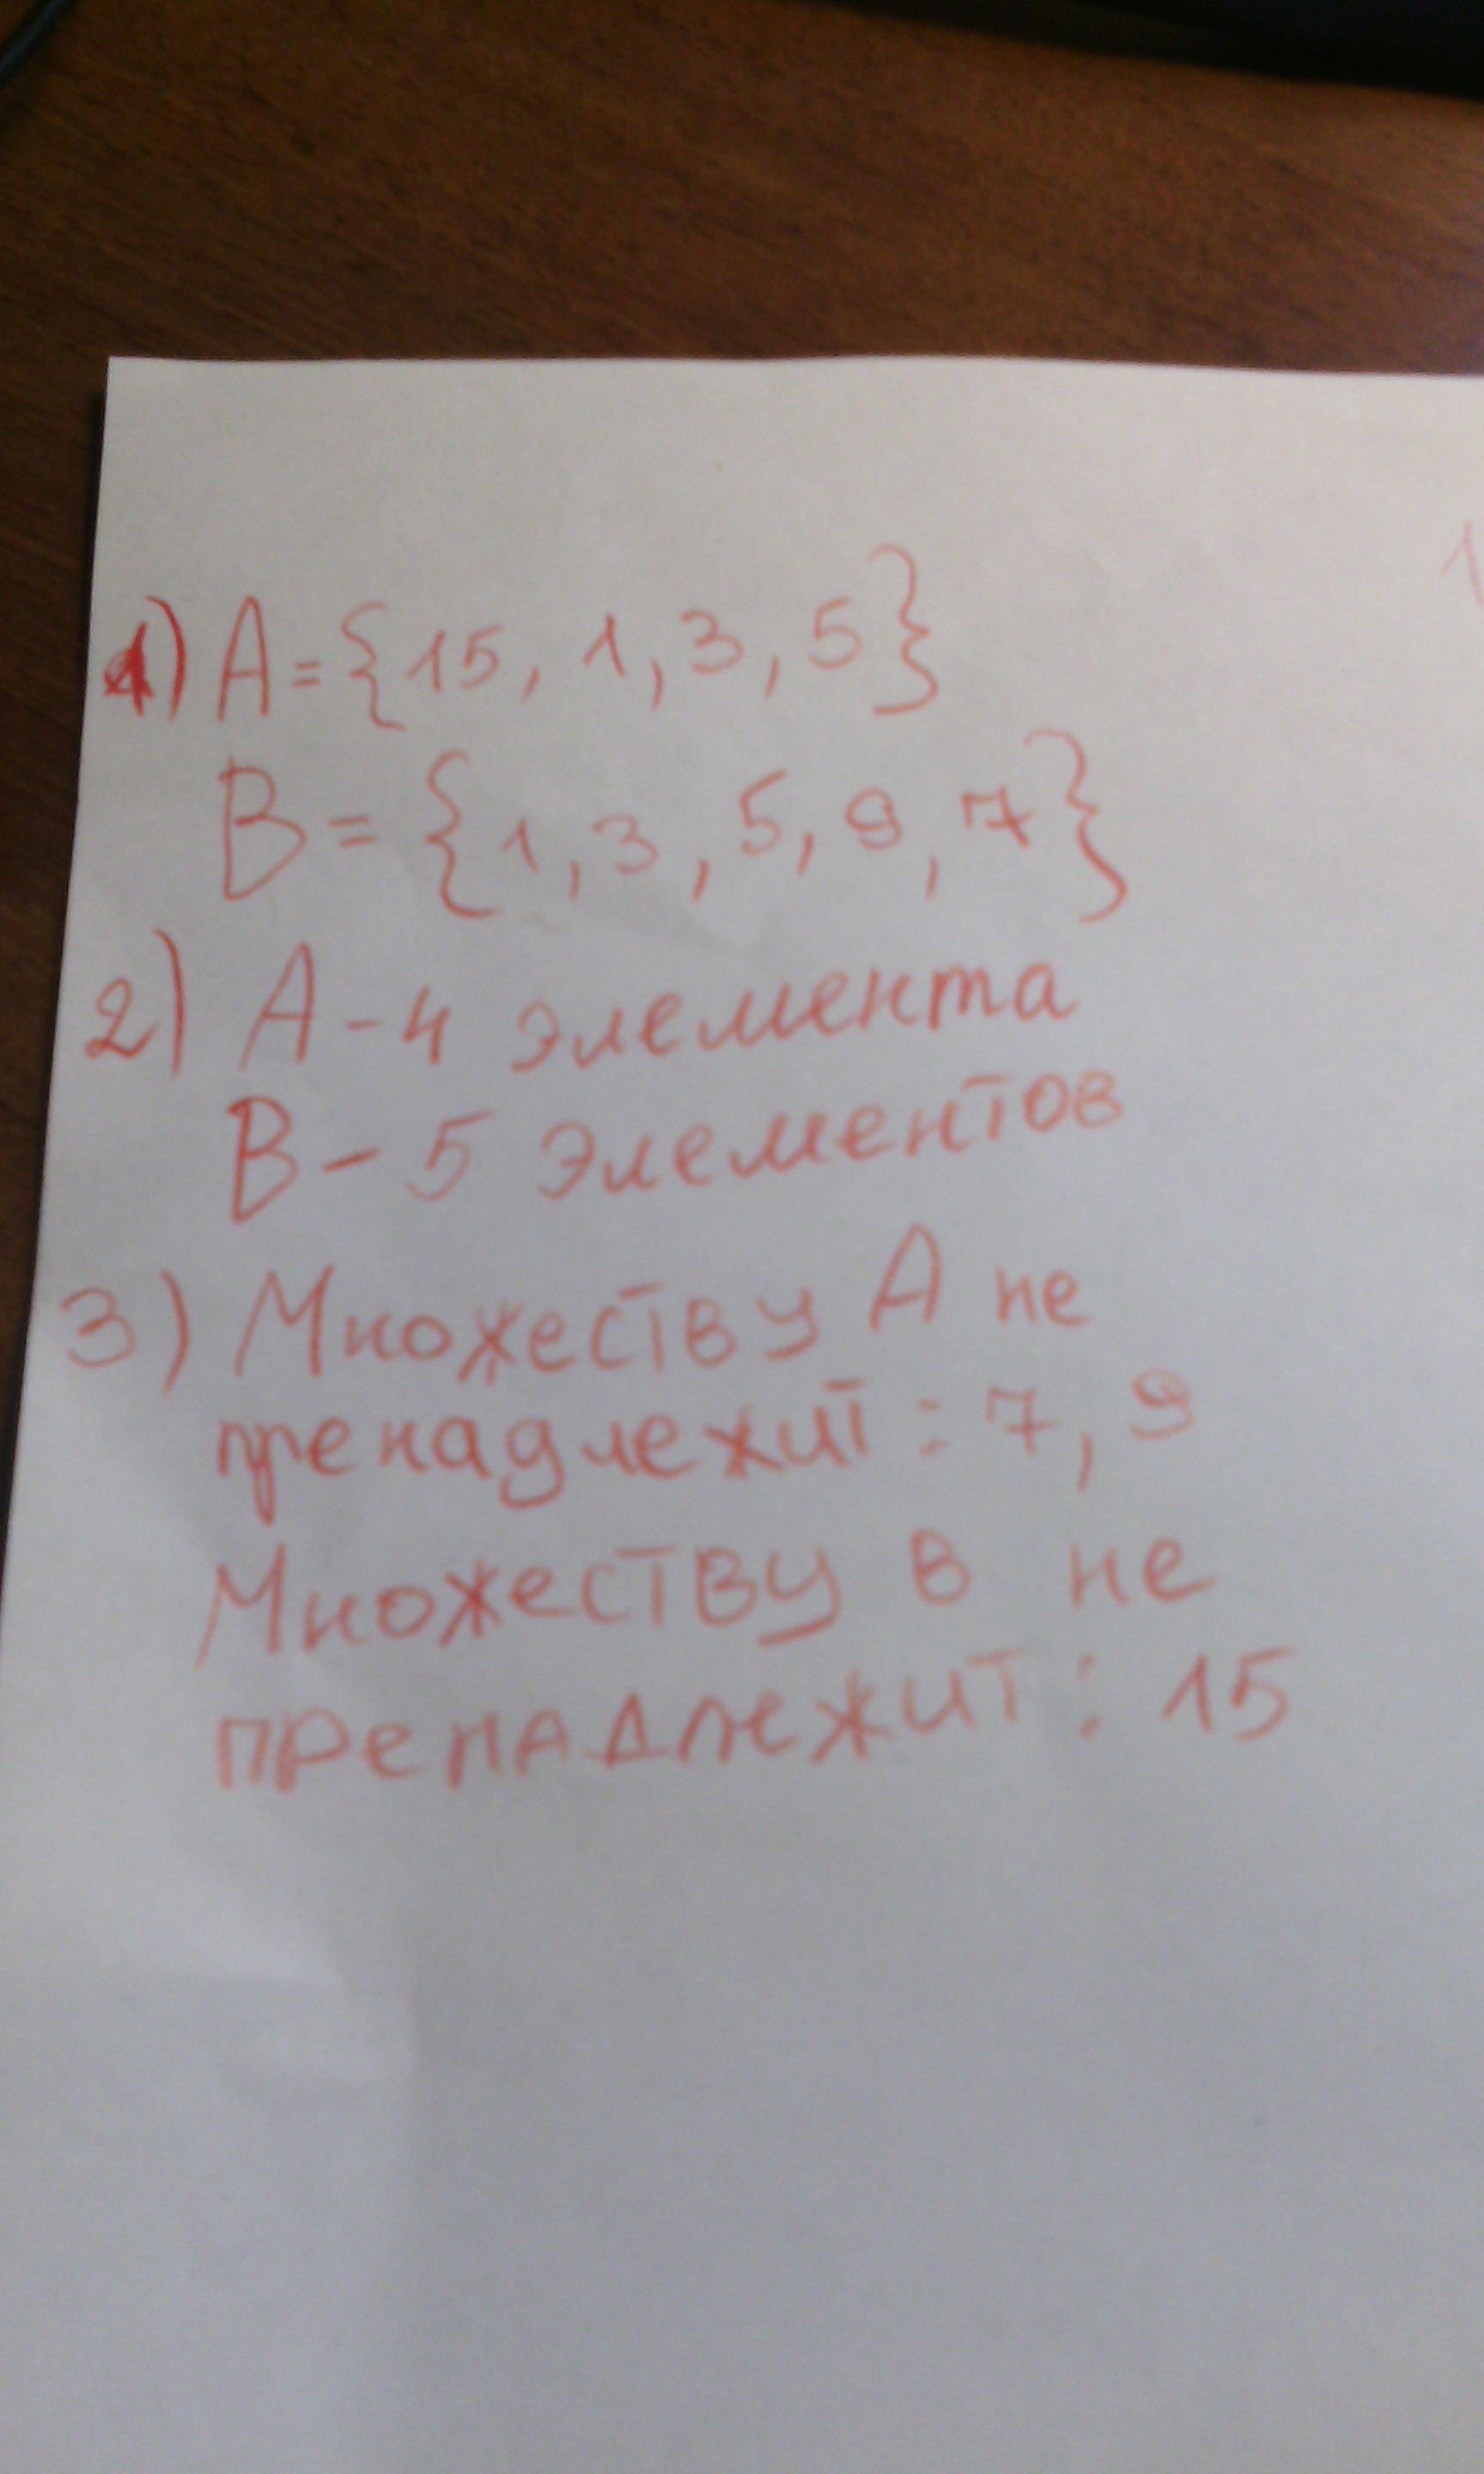 1) A = {15, 1, 3, 5}
B = {1, 3, 5, 9, 7}
2) A - 4 элемента
B - 5 элементов
3) Множеству A не
пренадлежит : 7, 9
Множеству B не
пренадлежит : 15
1